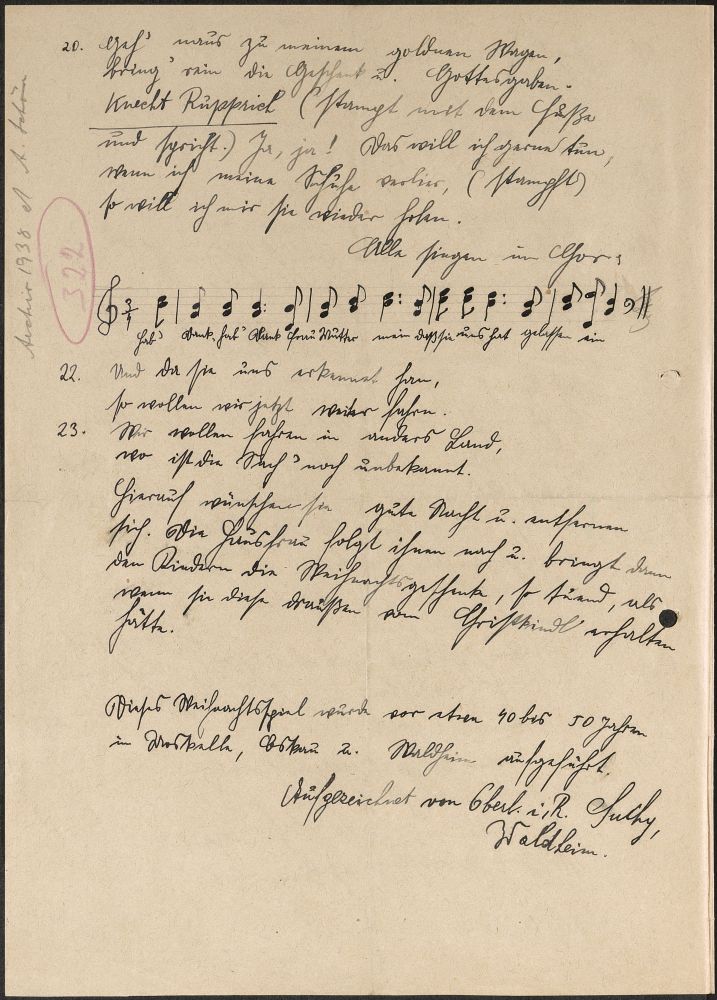 20. Geh' naus zu meinem goldnen Wagen,
bring' rein die Geschenk u. Gottesgaben.
Knecht Rupprich (stampt mit dem Fuße
und spricht:) Ja, ja! Das will ich gerne tun,
wenn ich meine Schuhe verlier, (stampft)
so will ich mir sie wieder holen.
Alle singen im Chor:
hab' Dank, hab' Dank Frau Mutter mein daß sie uns hat gelassen ein
22. Und da sie uns erkennet han,
so wollen wir jetzt weiter fahrn.
23. Wir wollen fahren in anders Land,
wo ist die Sach' noch unbekannt.
Hierauf wünschen sie gute Nacht u. entfernen
sich. Die Hausfrau folgt ihnen nach u. bringt dann
den Kindern die Weihnachtsgeschenke, so tuend, als
wenn sie diese draußen vom Christkindl erhalten
hätte.
Dieses Weihnachtsspiel wurde vor etwa 40 bis 50 Jahren
in Woskelle, Oskau u. Waldheim aufgeführt.
Aufgezeichnet von Oberl. i. R. Suchy,
Waldheim.
Archiv 1938 A. Schön
322